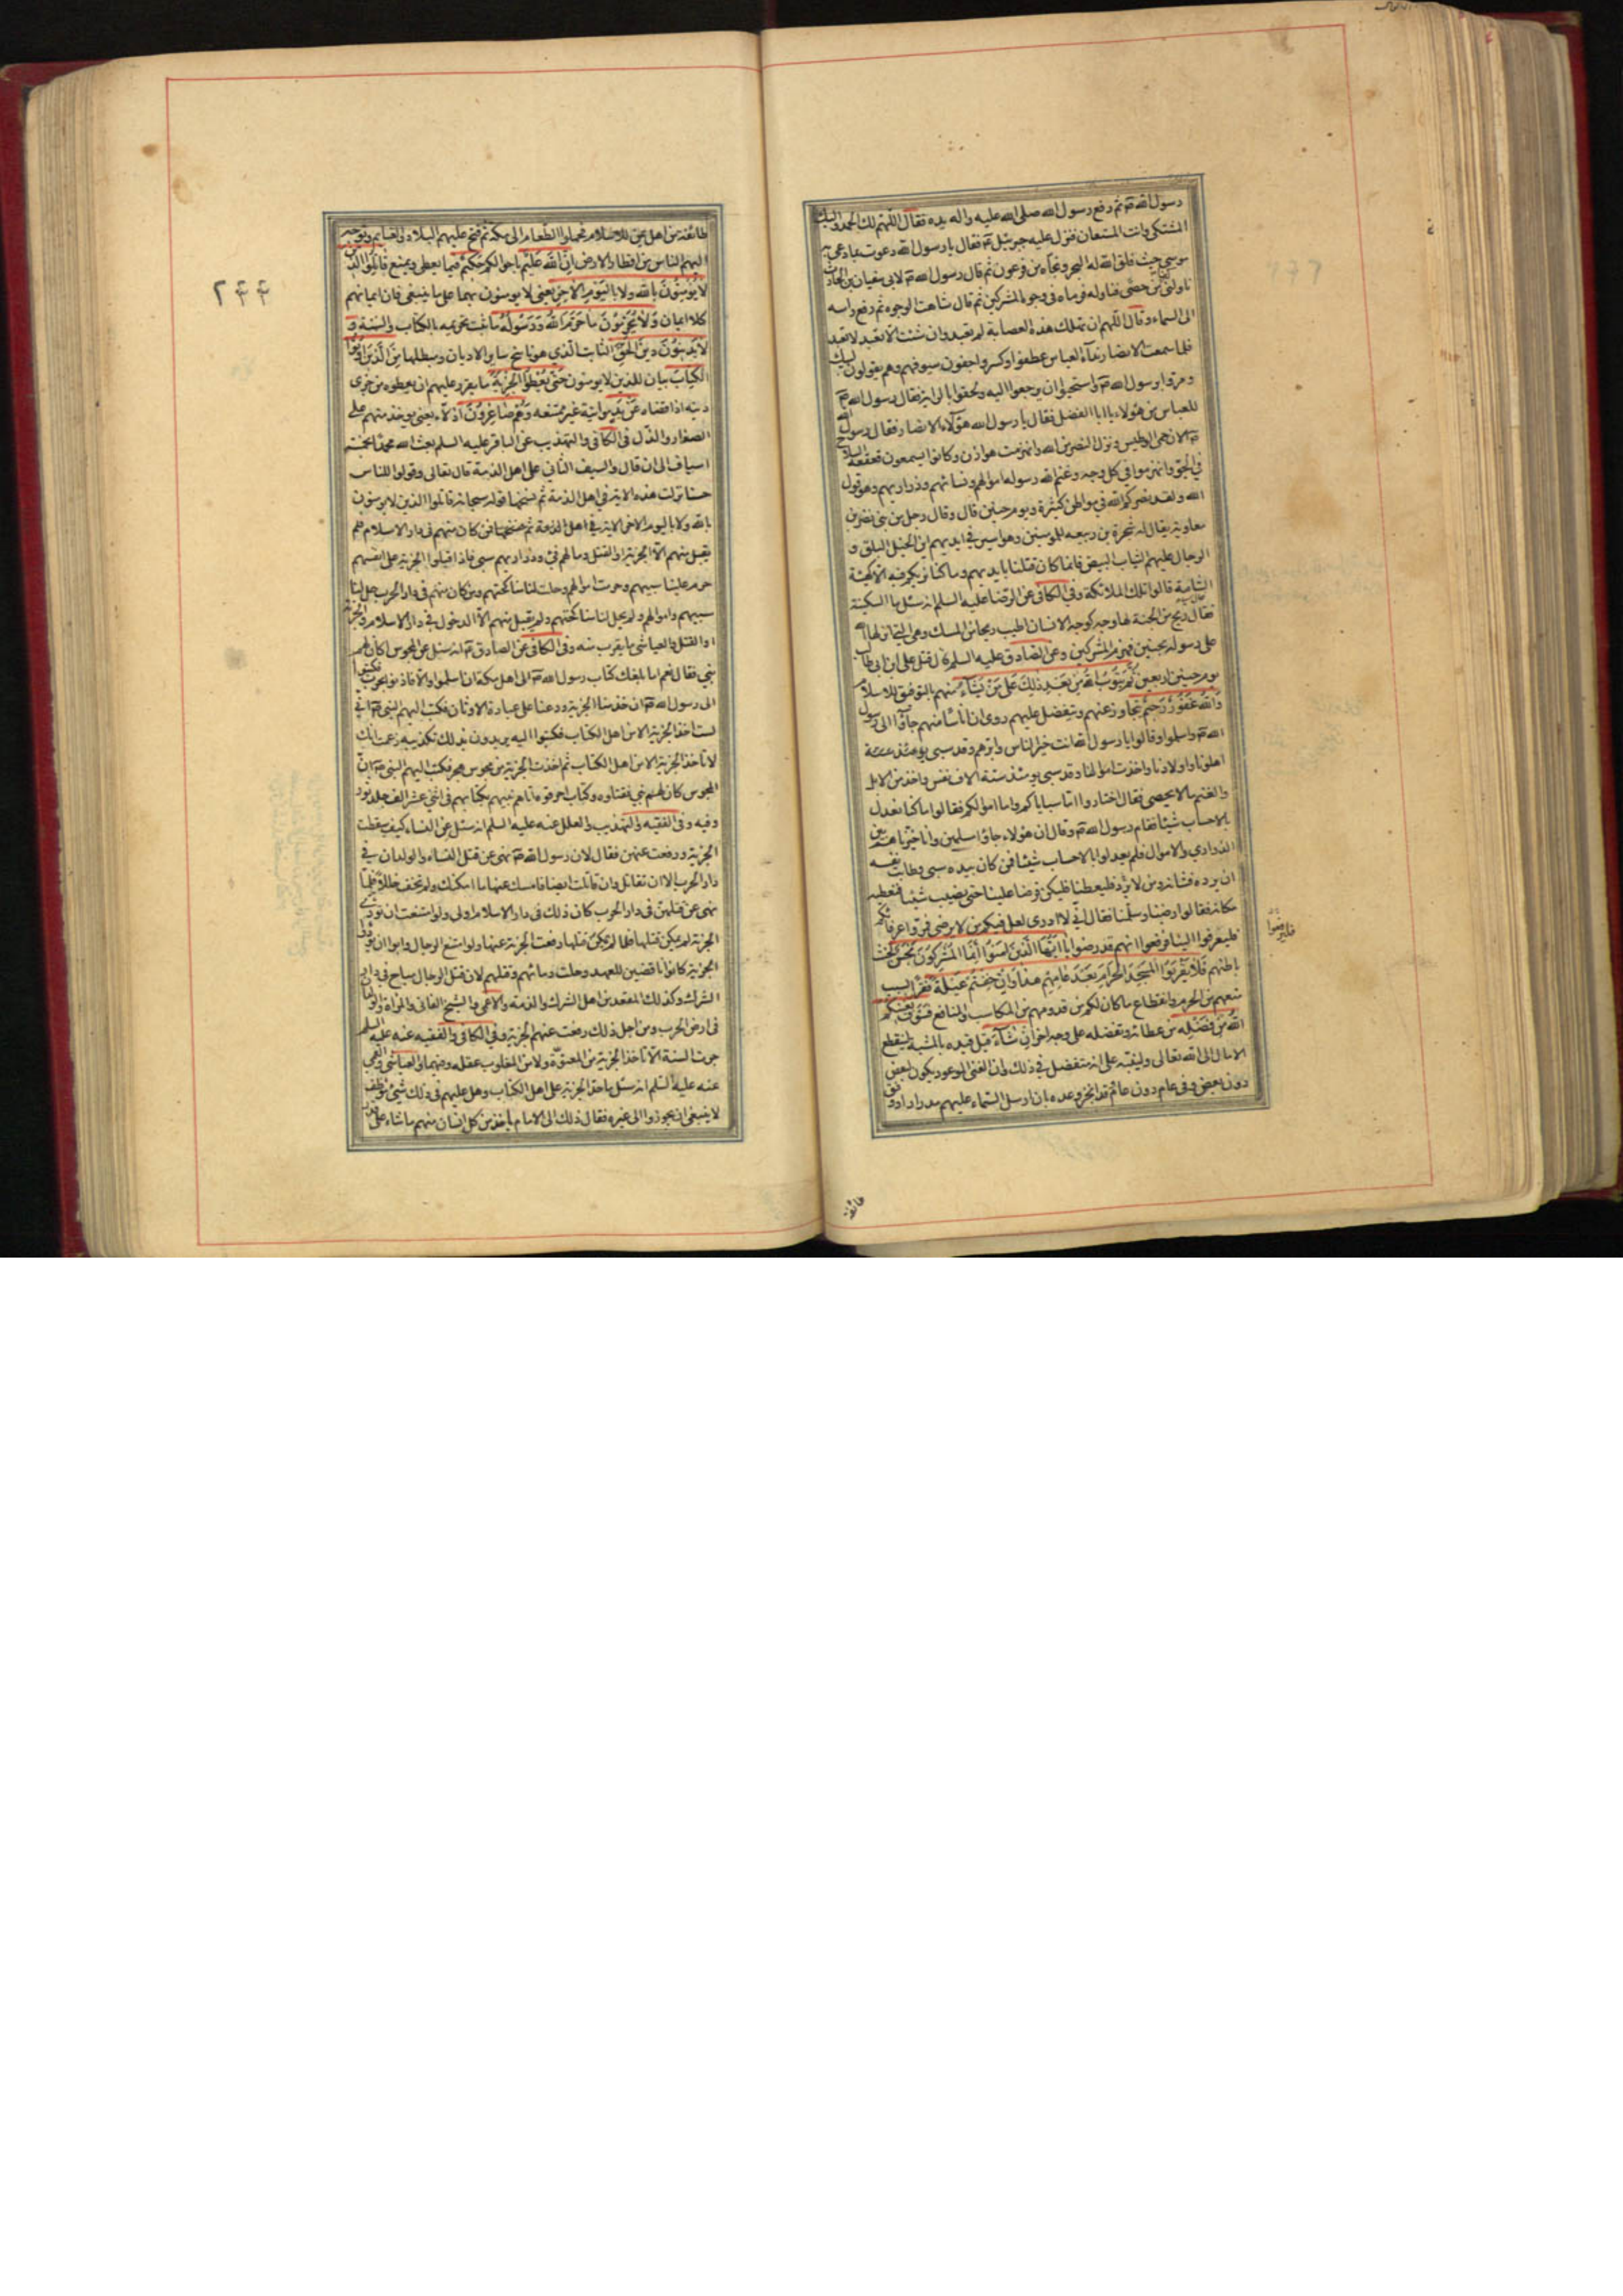 رسول الله ص ثم رفع رسول الله صلى الله عليه واله يده فقال اللهم لك الحمد واليك
المشتكى وانت المستعان فنزل عليه جبرئيل ع فقال يا رسول الله دعوت بما دعى به
موسى حيث فلق الله له البحر ونجاه من فرعون ثم قال رسول الله ص لابي سفيان بن الحارث
ناولني كفا من حصى فناوله فرماه في وجوه المشركين ثم قال شاهت الوجوه ثم رفع راسه
الى السماء وقال اللهم ان تهلك هذه العصابة لم تعبد وان شئت الا تعبد لا تعبد
فلما سمعت الانصار نداء العباس عطفوا وكسروا جفون سيوفهم وهم يقولون لبيك
ومروا برسول الله ص واستحيوا ان يرجعوا اليه ولحقوا بالراية فقال رسول الله ص
للعباس من هؤلاء يا ابا الفضل فقال يا رسول الله هؤلاء الانصار فقال رسول الله
ص الان حمى الوطيس ونزل النصر من الله وانهزمت هوازن وكانوا يسمعون قعقعة السلاح
في الجو وانهزموا في كل وجه وغنم الله رسوله اموالهم ونسائهم وذراريهم وهو قول
الله ولقد نصركم الله في مواطن كثيرة ويوم حنين قال وقال رجل من بني نضر بن
معاوية يقال له شجرة بن ربيعه للمومنين وهو اسير في ايديهم اين الخيل البلق و
الرجال عليهم الثياب البيض فانما كان قتلنا بايديهم وما كنا نريكم فيه الا كهيئة
الشامة قالوا تلك الملائكة وفي الكافي عن الرضا عليه السلم انه سئل ما السكينة
فقال ريح من الجنة لها وجه كوجه الانسان اطيب ريحا من المسك وهي التي انزلها الله
على رسوله بحنين فهزم المشركين وعن الصادق عليه السلم قال قتل علي ابن ابي طالب
يوم حنين اربعين ثُمَّ يَتُوبُ اللهُ مِنْ بَعْدِ ذٰلِكَ عَلىٰ مَنْ يَشٰآءُ منهم بالتوفيق للاسلام
وَاللهُ غَفُورٌ رَحِيمٌ يتجاوز عنهم ويتفضل عليهم روى ان اناسا منهم جاؤا الى رسول
الله ص واسلموا وقالوا يا رسول الله انت خير الناس وابرهم وقد سبي
اهلونا واولادنا واخذت اموالنا وقد سبي يومئذ ستة الاف نفس واخذ من الابل
والغنم ما لا يحصى فقال اختاروا اما سباياكم واما اموالكم فقالوا ما كنا نعدل
بالاحساب شيئا فقام رسول الله ص وقال ان هؤلاء جاؤا مسلمين وانا خيرناهم بين
الذراري والاموال فلم يعدلوا بالاحساب شيئا فمن كان بيده سبي وطابت نفسه
ان يرده فشانه ومن لا يرد فليعطنا وليكن قرضا علينا حتى نصيب شيئا فنعطيه
مكانه فقالوا رضينا وسلمنا فقال اني لا ادري لعل فيكم من لا يرضى فمروا عرفائكم
فليعرفوا الينا فرفعوا انهم قد رضوا يٰآ اَيُّهَا الَّذِينَ اٰمَنُوا اِنَّمَا الْمُشْرِكُونَ نَجَسٌ لخبث
باطنهم فَلٰا يَقْرَبُوا الْمَسْجِدَ الْحَرٰامَ بَعْدَ عٰامِهِمْ هٰذٰا وَاِنْ خِفْتُمْ عَيْلَةً فقرا بسبب
منعهم من الحرم وانقطاع ما كان لكم من قدومهم من المكاسب والمنافع فَسَوْفَ يُغْنِيكُمُ
اللهُ مِنْ فَضْلِهِ من عطائه وتفضله على وجه اخر اِنْ شٰآءَ قيل قيده بالمشية لينقطع
الامال الى الله تعالى ولينبه على انه متفضل في ذلك وان الغنى الموعود يكون لبعض
دون بعض وفي عام دون عام قد انجز وعده بان ارسل السماء عليهم مدرارا ووفق
فليرفعوا
طائفة
٢٤٤
طائفة من اهل يمن للاسلام فحملوا الطعام الى مكة ثم فتح عليهم البلاد والغنايم وتوجه
اليهم الناس من اقطار الارض اِنَّ اللهَ عَلِيمٌ باحوالكم حَكِيمٌ فيما يعطي ويمنع قٰاتِلُوا الَّذِينَ
لٰا يُؤْمِنُونَ بِاللهِ وَلٰا بِالْيَوْمِ الْاٰخِرِ يعني لا يومنون بهما على ما ينبغي فان ايمانهم
كلا ايمان وَلٰا يُحَرِّمُونَ مٰا حَرَّمَ اللهُ وَرَسُولُهُ ما ثبت تحريمه بالكتاب والسنة وَ
لٰا يَدِينُونَ دِينَ الْحَقِّ الثابت الذي هو ناسخ ساير الاديان ومبطلها مِنَ الَّذِينَ اُوتُوا
الْكِتٰابَ بيان للذين لا يومنون حَتّٰى يُعْطُوا الْجِزْيَةَ ما يقرر عليهم ان يعطوه من جزى
دينه اذا قضاه عَنْ يَدٍ مواتية غير ممتنعه وَهُمْ صٰاغِرُونَ اذلاء يعني يوخذ منهم على
الصغار والذل في الكافي والتهذيب عن الباقر عليه السلم بعث الله محمدا بخمسة
اسياف الى ان قال والسيف الثاني على اهل الذمة قال تعالى وقولوا للناس
حسنا نزلت هذه الاية في اهل الذمة ثم نسخها قوله سبحانه قاتلوا الذين لا يومنون
بالله ولا باليوم الاخر الاية في اهل الذمة ثم نسخها فمن كان منهم في دار الاسلام فلم
يقبل منهم الا الجزية او القتل ومالهم فيء وذراريهم سبي فاذا قبلوا الجزية على انفسهم
حرم علينا سبيهم وحرمت اموالهم وحلت لنا مناكحتهم ومن كان منهم في دار الحرب حل لنا
سبيهم واموالهم ولم يحل لنا مناكحتهم ولم يقبل منهم الا الدخول في دار الاسلام والجزية
او القتل والعياشي ما يقرب منه وفي الكافي عن الصادق ع انه سئل عن المجوس اكان لهم
نبي فقال نعم اما بلغك كتاب رسول الله ص الى اهل مكة ان اسلموا والا فاذنوا بحرب فكتبوا
الى رسول الله ص ان خذ منا الجزية ودعنا على عبادة الاوثان فكتب اليهم النبي ص اني
لست اخذ الجزية الا من اهل الكتاب فكتبوا اليه يريدون بذلك تكذيبه زعمت انك
لا تاخذ الجزية الا من اهل الكتاب ثم اخذت الجزية من مجوس هجر فكتب اليهم النبي ص ان
المجوس كان لهم نبي فقتلوه وكتاب احرقوه اتاهم نبيهم بكتابهم في اثني عشر الف جلد ثور
وفيه وفي الفقيه والتهذيب والعلل عنه عليه السلم انه سئل عن النساء كيف سقطت
الجزية ورفعت عنهن فقال لان رسول الله ص نهى عن قتل النساء والولدان في
دار الحرب الا ان تقاتل وان قاتلت ايضا فامسك عنها ما امكنك ولم تخف خللا فلما
نهى عن قتلهن في دار الحرب كان ذلك في دار الاسلام اولى ولو امتنعت ان تودي
الجزية لم يمكن قتلها فلما لم يمكن قتلها رفعت الجزية عنها ولو امتنع الرجال وابوا ان يؤدوا
الجزية كانوا ناقضين للعهد وحلت دمائهم وقتلهم لان قتل الرجال مباح في دار
الشرك وكذلك المقعد من اهل الشرك والذمة والاعمى والشيخ الفاني والمراة والولدان
في ارض الحرب ومن اجل ذلك رفعت عنهم الجزية وفي الكافي والفقيه عنه عليه السلم
جرت السنة الا تاخذ الجزية من المعتوه ولا من المغلوب عقله وفيهما والعياشي والقمي
عنه عليه السلم انه سئل ما حد الجزية على اهل الكتاب وهل عليهم في ذلك شيئ موظف
لا ينبغي ان يجوزوا الى غيره فقال ذلك الى الامام ياخذ من كل انسان منهم ما شاء على قدر